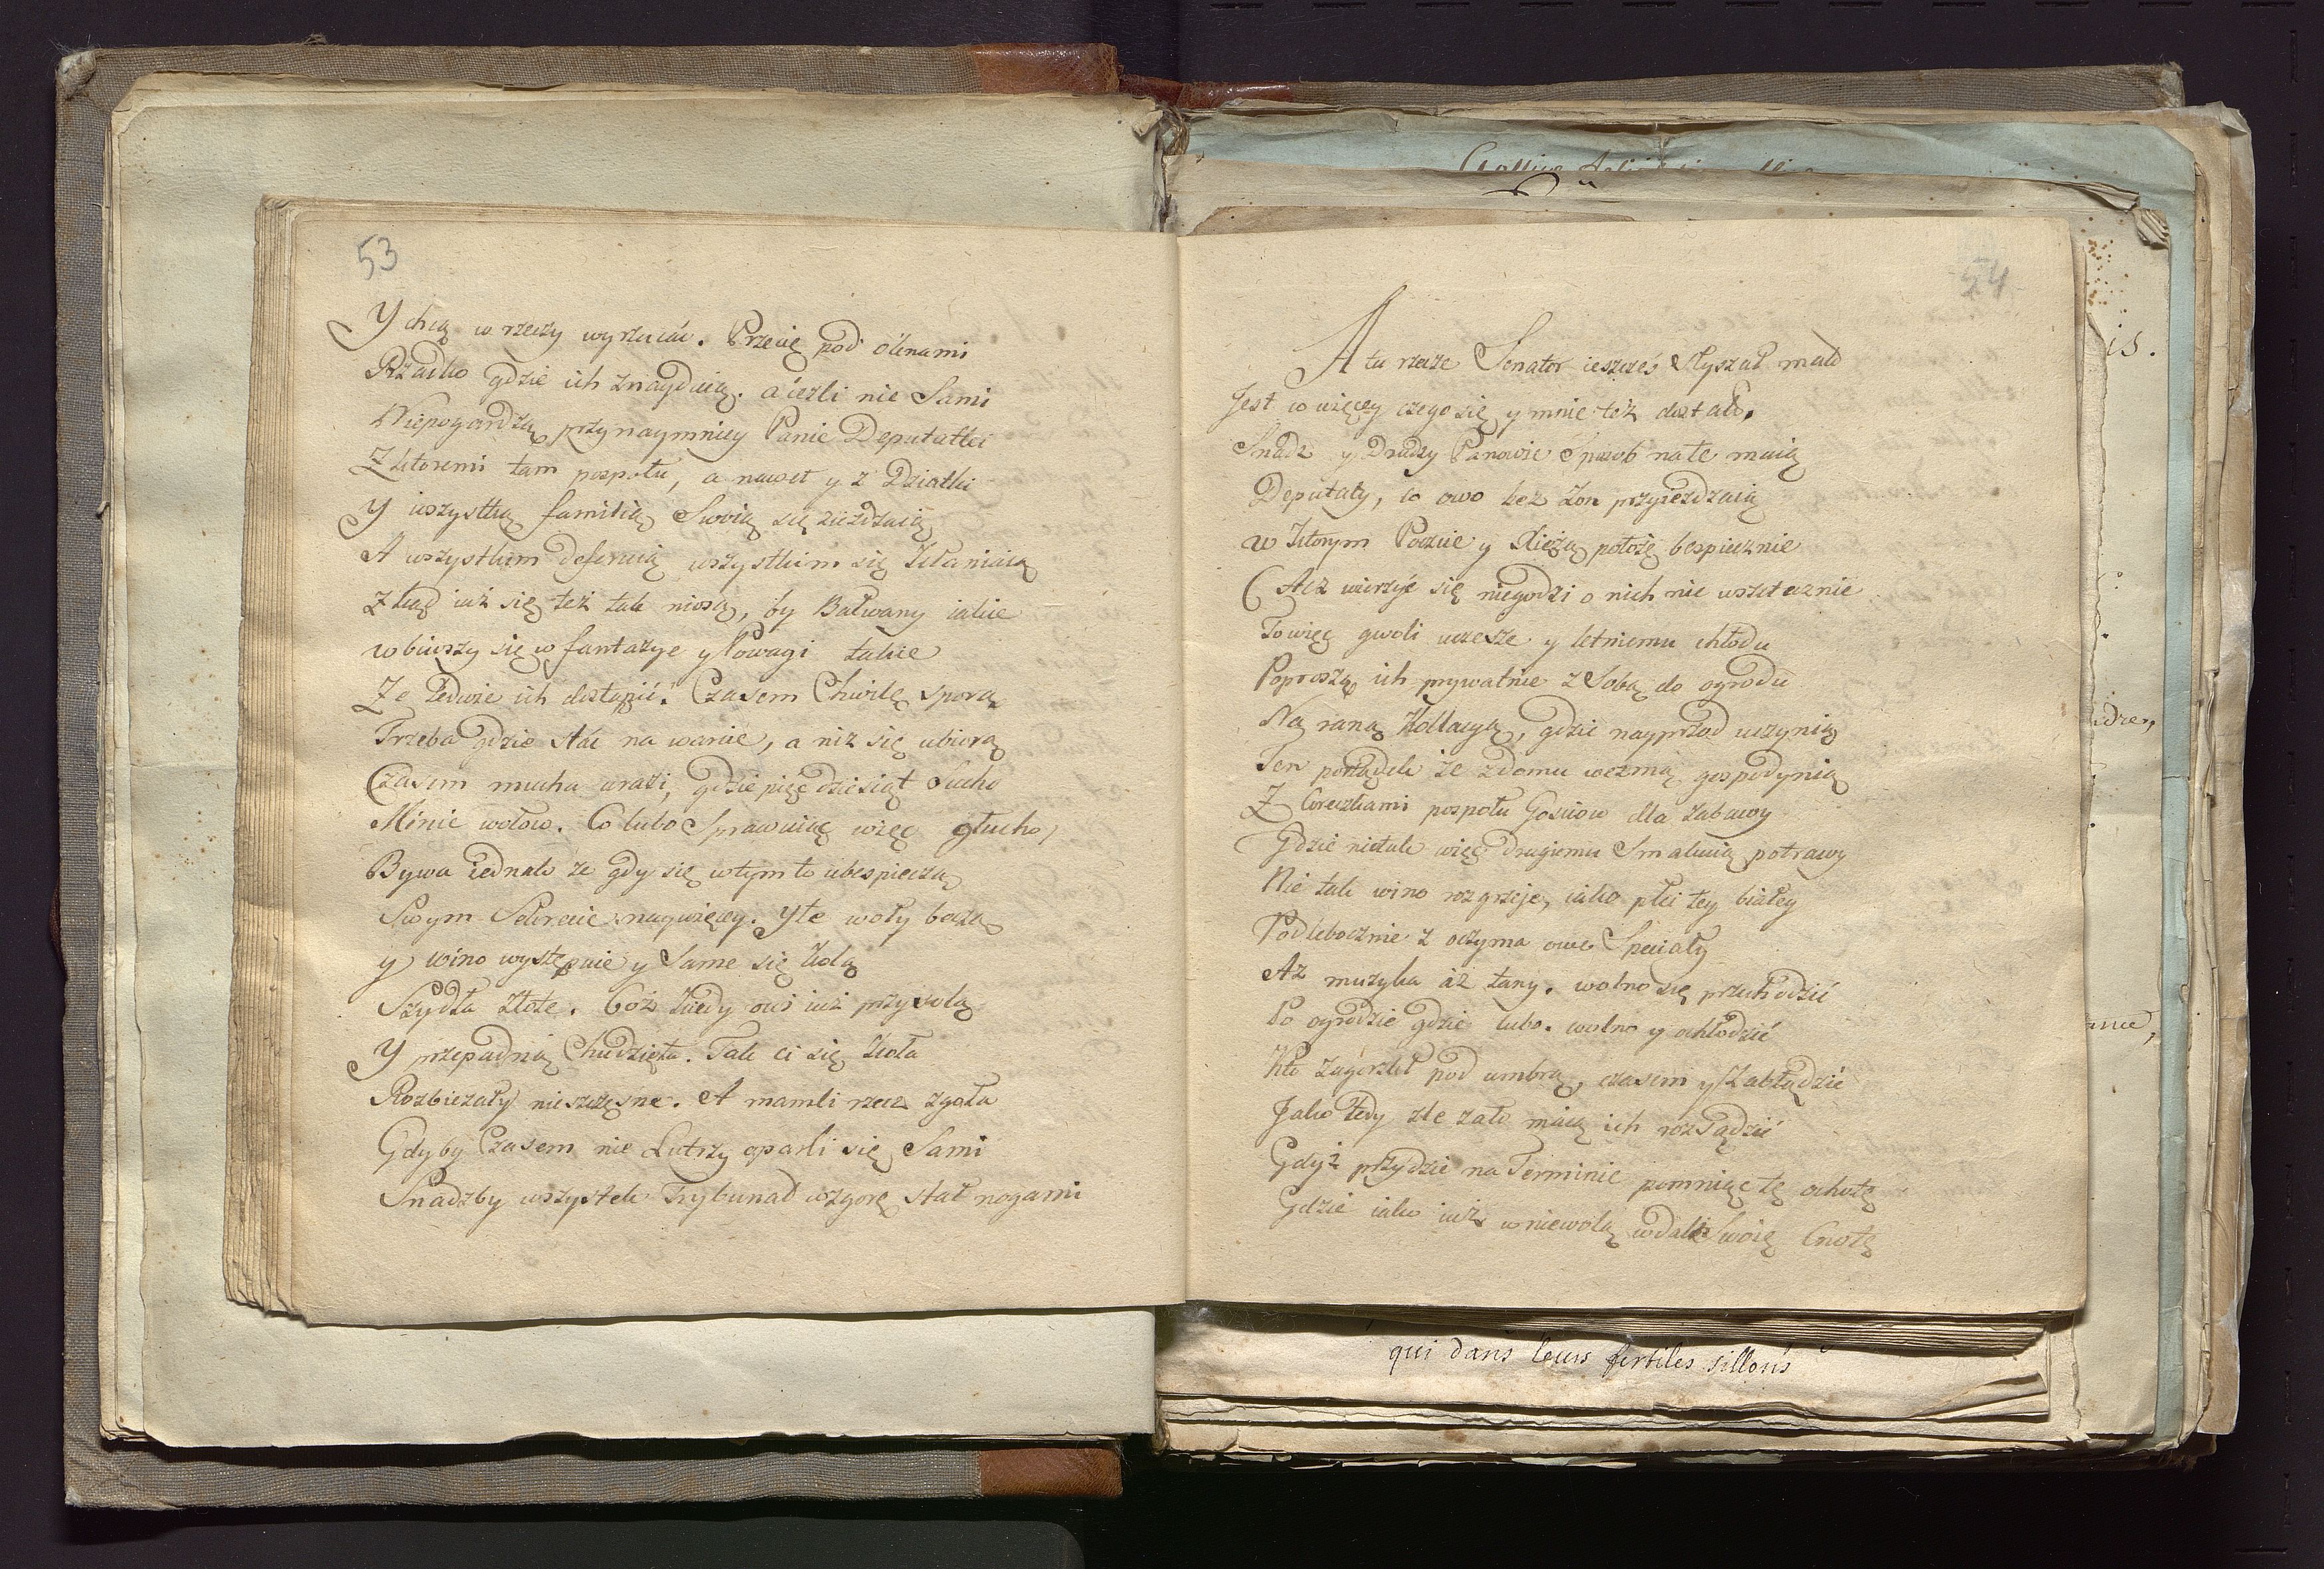 53
Y chcą w rzeczy wyrzucać. Przecię pod oknami
Rzadko gdzie ich znayduią. a ieżli nie Sami
Niepogardzą przynaymniey Panie Deputatki
Z ktoremi tam pospołu, a nawet y z Dziatki
Y wszystką familią Swoią się zieżdzaią
A wszystkim deferuią wszystkim się kłaniaią
Ztąd iuż się też tak niosą, by Bałwany iakie
wbiwszy się w fantazye y Powagi takie
Ze Ledwie ich dostąpić. Czasem Chwilę sporą
Trzeba gdzie stać na warcie, a niż się ubiorą
Czasem mucha urazi, gdzie pięcdziesiąt Sucho
Minie wołow. Co lubo Sprawuią więc głucho,
Bywa iednak że gdy się wtym to ubespieczą
Swym Sekrecie naywięcey. Yte woły beczą
y wino występuie y Same się kolą
Szydła złote. Coż kiedy owi iuż przysolą
Y przepadną Chudzięta. Tak ci się koła
Rozbieżały nieszczęsne. A mamli rzec zgoła
Gdyby Czasem nie Lutrzy oparli się Sami
Snadzby wszystek Trybunał wzgorę stał nogami
54
A tu rzecze Senator ieszcześ Słyszał mało
Jest co więcey czego się y mnie też dostało.
Snadz y Drudzy Panowie Sposob na te maią
Deputaty, co owo bez żon przyieżdzaią
w ktorym Poczcie y Xiężą położę bespiecznie
Acz wierzyć się niegodzi o nich nic wszetecznie
To więc gwoli wczesze y letniemu chłodu
Poproszą ich prywatnie z Sobą do ogrodu
Na raną Kollacyą, gdzie nayprzod uczynią
Ten porządek że z domu wezmą gospodynią
Z Coreczkami pospołu Gosciow dla zabawy
Gdzie nietak więc drugiemu Smakuią potrawy
Nie tak wino rozgrzeje, iako płci tey białey
Podlebocznie z oczyma owe Speciały
Aż muzyka aż tany. wolno się przechodzić
Po ogrodzie gdzie lubo. wolno y ochłodzić
Kto zagorzał pod umbrą, czasem y Zabłądzić
Jako tedy źle zato maią ich rozsądzić
Gdyż przydzie na Terminie pomniąc tę ochotę
Gdzie iako iuż w niewolą wdali Swoię Cnotę
is.
qui dans leurs fertiles sillons